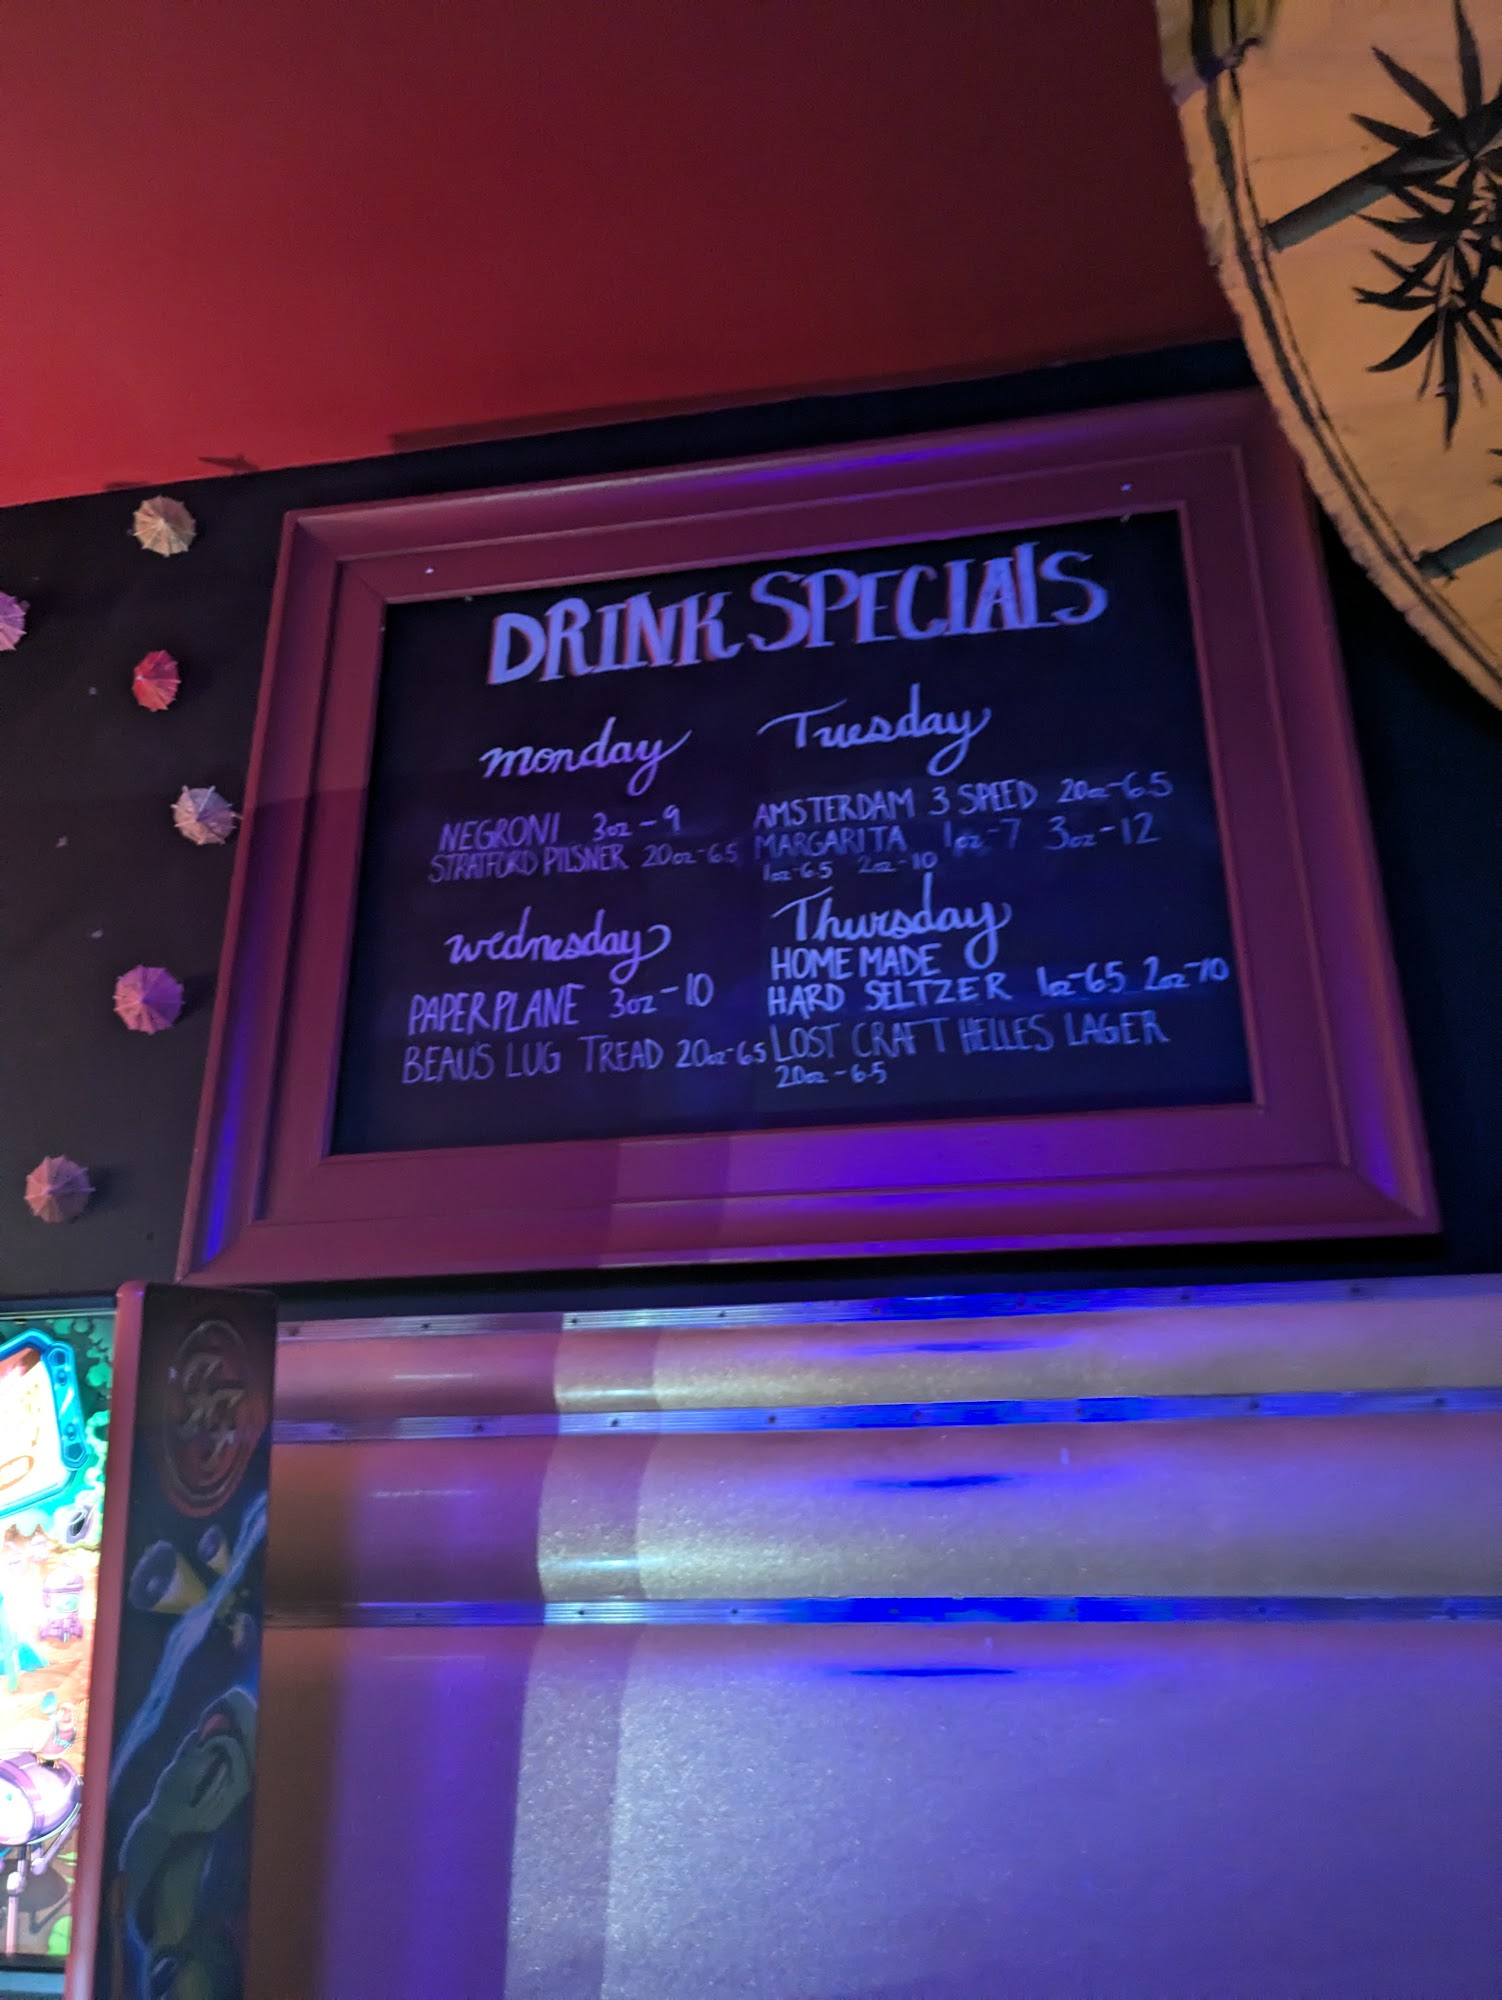 DRINK SPECIALS
monday
NEGRONI 3oz - 9
STRATFORD PILSNER 20oz - 6.5
Tuesday
AMSTERDAM 3 SPEED 20oz - 6.5
MARGARITA 1oz - 7 3oz - 12
1oz - 6.5 2oz - 10
wednesday
PAPER PLANE 3oz - 10
BEAU'S LUG TREAD 20oz - 6.5
Thursday
HOME MADE
HARD SELTZER 1oz - 6.5 2oz - 10
LOST CRAFT HELLES LAGER
20oz - 6.5